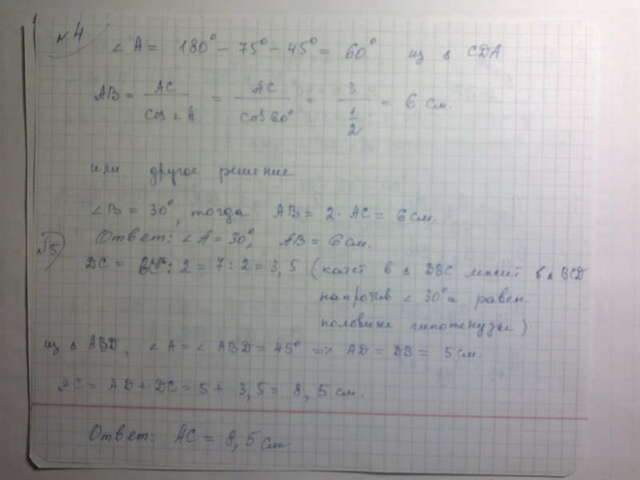 №4 ∠A = 180° - 75° - 45° = 60° из △ CDA
AB = AC / cos∠A = AC / cos60° = 3 / (1/2) = 6 см.
или другое решение
∠B = 30°, тогда AB = 2 · AC = 6 см.
Ответ: ∠A = 30°, AB = 6 см.
№5 DC = BC : 2 = 7 : 2 = 3,5 (катет в △ DBC лежит в △ BCD
напротив ∠ 30° и равен
половине гипотенузы)
из △ ABD, ∠A = ∠ABD = 45° => AD = DB = 5 см.
AC = AD + DC = 5 + 3,5 = 8,5 см.
Ответ: AC = 8,5 см